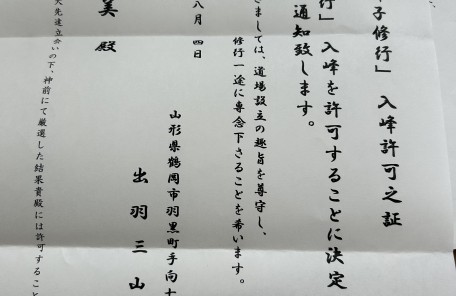 子修行」 入峰許可之証
行」 入峰を許可することに決定
通知致します。
きましては、道場設立の趣旨を尊守し、
修行一途に専念下さることを希います。
八月 四日
山形県鶴岡市羽黒町手向十
出羽三山
美 殿
大先達立会いの下、神前にて厳選した結果貴殿には許可すること